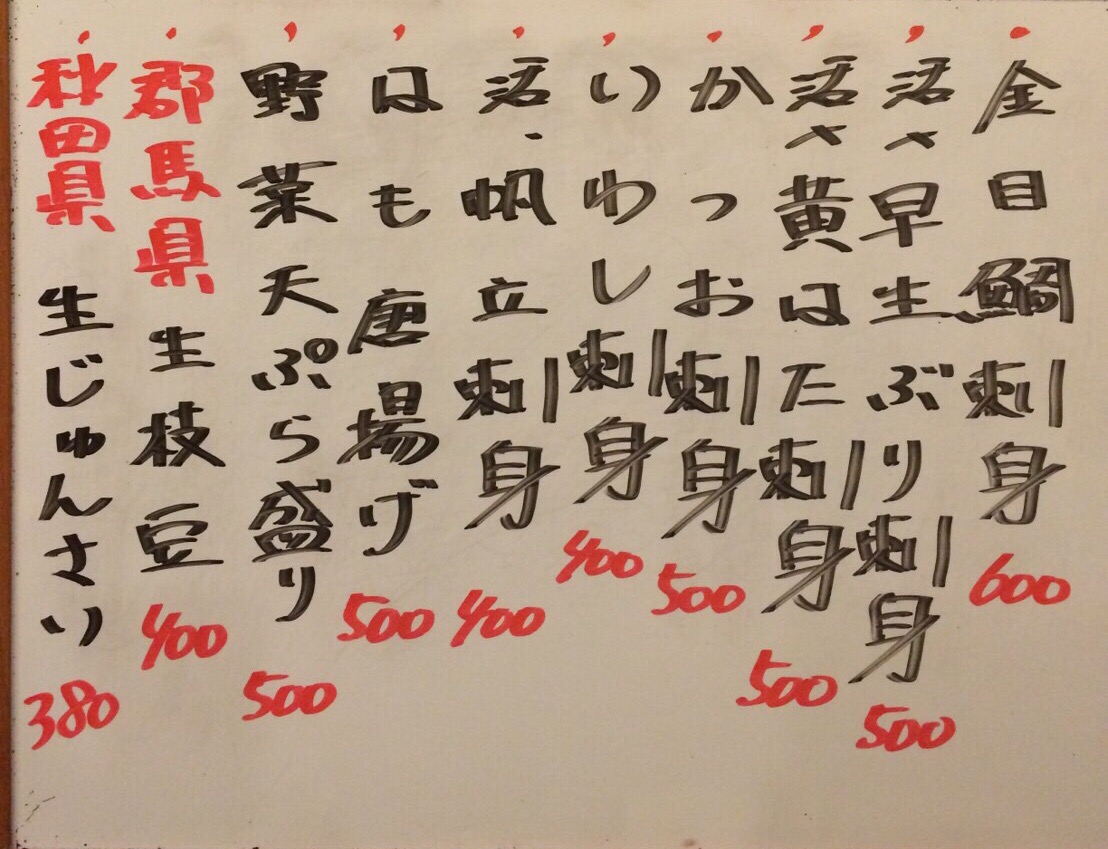 ・金目鯛刺身 600
・活〆早生ぶり刺身 500
・活〆黄はた刺身 500
・かつお刺身 500
・いわし刺身 400
・活・帆立刺身 400
・はも唐揚げ 500
・野菜天ぷら盛り 500
・郡馬県 生枝豆 400
・秋田県 生じゅんさい 380